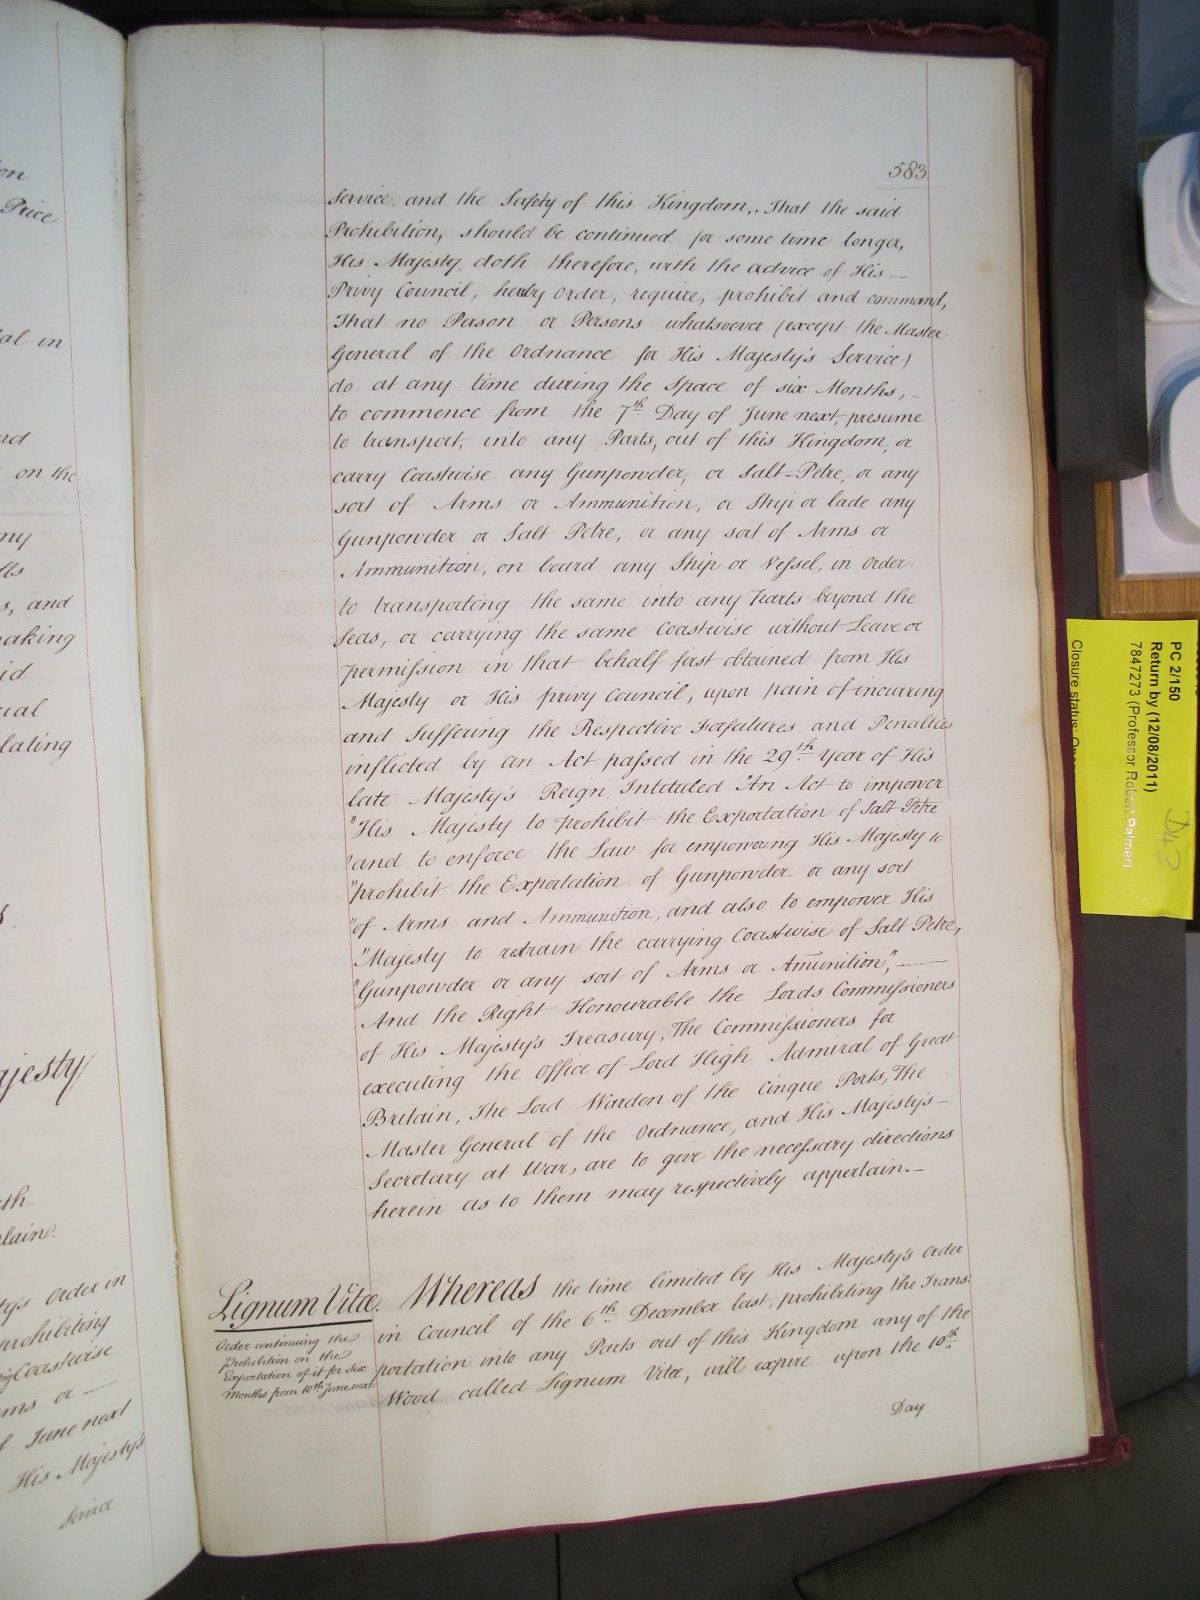 on
Price
al in
nd
on the
ny
lls
s, and
making
id
ual
lating
s.
ajesty
th
lain.
ty's Order in
prohibiting
g Coastwise
ms or —
f June next
His Majesty's
Service
583.
Service and the Safety of this Kingdom, That the said
Prohibition, should be continued for some time longer,
His Majesty doth therefore, with the advice of His —
Privy Council, hereby Order, require, prohibit and command,
That no Person or Persons whatsoever (except the Master
General of the Ordnance for His Majesty's Service)
do at any time during the Space of six Months, —
to commence from the 7th Day of June next, presume
to transport, into any Parts, out of this Kingdom, or
carry Coastwise any Gunpowder, or Salt-Petre, or any
sort of Arms or Ammunition, or Ship or lade any
Gunpowder or Salt Petre, or any sort of Arms or
Ammunition, on board any Ship or Vessel, in Order
to transporting the same into any Parts beyond the
Seas, or carrying the same Coastwise without Leave or
permission in that behalf first obtained from His
Majesty or His privy Council, upon pain of incurring
and Suffering the Respective Forfeitures and Penalties
inflicted by an Act passed in the 29th Year of His
late Majesty's Reign, Intituled "An Act to impower
"His Majesty to prohibit the Exportation of Salt Petre
"and to enforce the Law for empowering His Majesty to
"prohibit the Exportation of Gunpowder or any sort
"of Arms and Ammunition, and also to empower His
"Majesty to retrain the carrying Coastwise of Salt Petre,
"Gunpowder or any sort of Arms or Amunition", —
And the Right Honourable the Lords Commissioners
of His Majesty's Treasury, The Commissioners for
executing the Office of Lord High Admiral of Great
Britain, The Lord Warden of the Cinque Ports, The
Master General of the Ordnance, and His Majesty's —
Secretary at War, are to give the necessary directions
herein as to them may respectively appertain. —
Lignum Vitæ.
Order continuing the
Prohibition on the
Exportation of it for six
Months from 10th June next.
Whereas the time limited by His Majesty's Order
in Council of the 6th December last, prohibiting the Trans-
portation into any Parts out of this Kingdom any of the
Wood called Lignum Vitæ, will expire upon the 10th
Day
PC 2/150
Return by (12/08/2011)
7847273 (Professor Robert Palmer)
Closure status:
D43